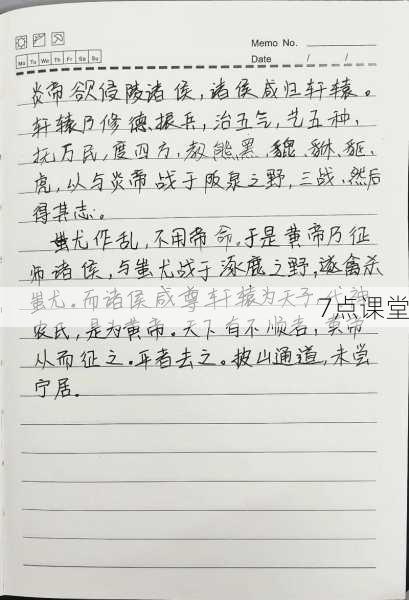 Memo No.
Mo Tu We Th Fr Sa Su
Date / /
炎帝欲侵陵诸侯,诸侯咸归轩辕。
轩辕乃修德振兵,治五气,艺五种,
抚万民,度四方,教熊罴貔貅䝙
虎,以与炎帝战于阪泉之野,三战,然后
得其志。
蚩尤作乱,不用帝命,于是黄帝乃征
师诸侯,与蚩尤战于涿鹿之野,遂禽杀
蚩尤。而诸侯咸尊轩辕为天子,代神
农氏,是为黄帝。天下有不顺者,黄帝
从而征之。平者去之。披山通道,未尝
宁居。
7点课堂